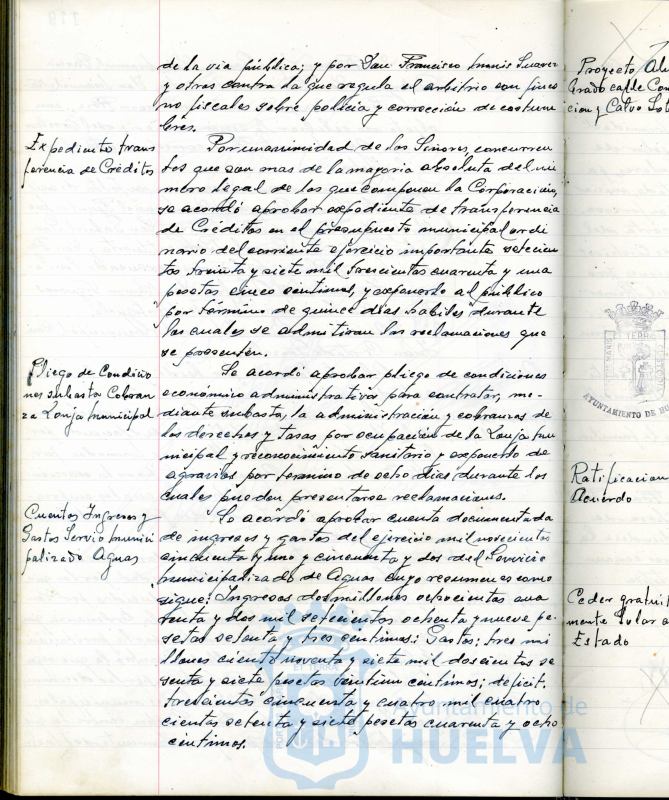 de la via pública; y por Don Francisco Suarez
y otros contra la que regula el arbitrio con fines
no fiscales sobre policia y corrección de costum
bres.
Expediente trans
ferencia de Créditos
Por unanimidad de los Señores concurren
tes que son mas de la mayoria absoluta del nú
mero legal de los que componen la Corporación,
se acordó aprobar expediente de transferencia
de Créditos en el presupuesto municipal ordi
nario del corriente ejercicio importante setecien
tas treinta y siete mil trescientas cuarenta y una
pesetas cinco centimos, y exponerlo al público
por término de quince dias habiles durante
los cuales se admitiran las reclamaciones que
se presenten.
Pliego de Condicio
nes subasta Cobran
za Lonja Municipal
Se acordó aprobar pliego de condiciones
económico administrativas para contratar, me-
diante subasta, la administración y cobranza de
los derechos y tasas por ocupación de la Lonja mu
nicipal y reconocimiento sanitario y exponerlo de
agravios por termino de ocho dias durante los
cuales pueden presentarse reclamaciones.
Cuentas Ingresos y
Gastos Servicio munici
palizado Aguas
Se acordó aprobar cuenta documentada
de ingresos y gastos del ejercicio mil novecientos
cincuenta y uno y cincuenta y dos del Servicio
Municipalizado de Aguas cuyo resumen es como
sigue: Ingresos dos millones ochocientas cua
renta y dos mil setecientos ochenta y nueve pe-
setas setenta y tres centimos: Gastos: tres mi
llones ciento noventa y siete mil doscientos se
senta y siete pesetas veintiun centimos; deficit:
trescientas cincuenta y cuatro mil cuatro
cientas setenta y siete pesetas cuarenta y ocho
centimos.
Proyecto Al
brado calle Con
cion y Calvo Sot
Ratificacion
Acuerdo
Ceder gratuit
mente Solar a
Estado
AYUNTAMIENTO DE HU
Ayuntamiento de
HUELVA